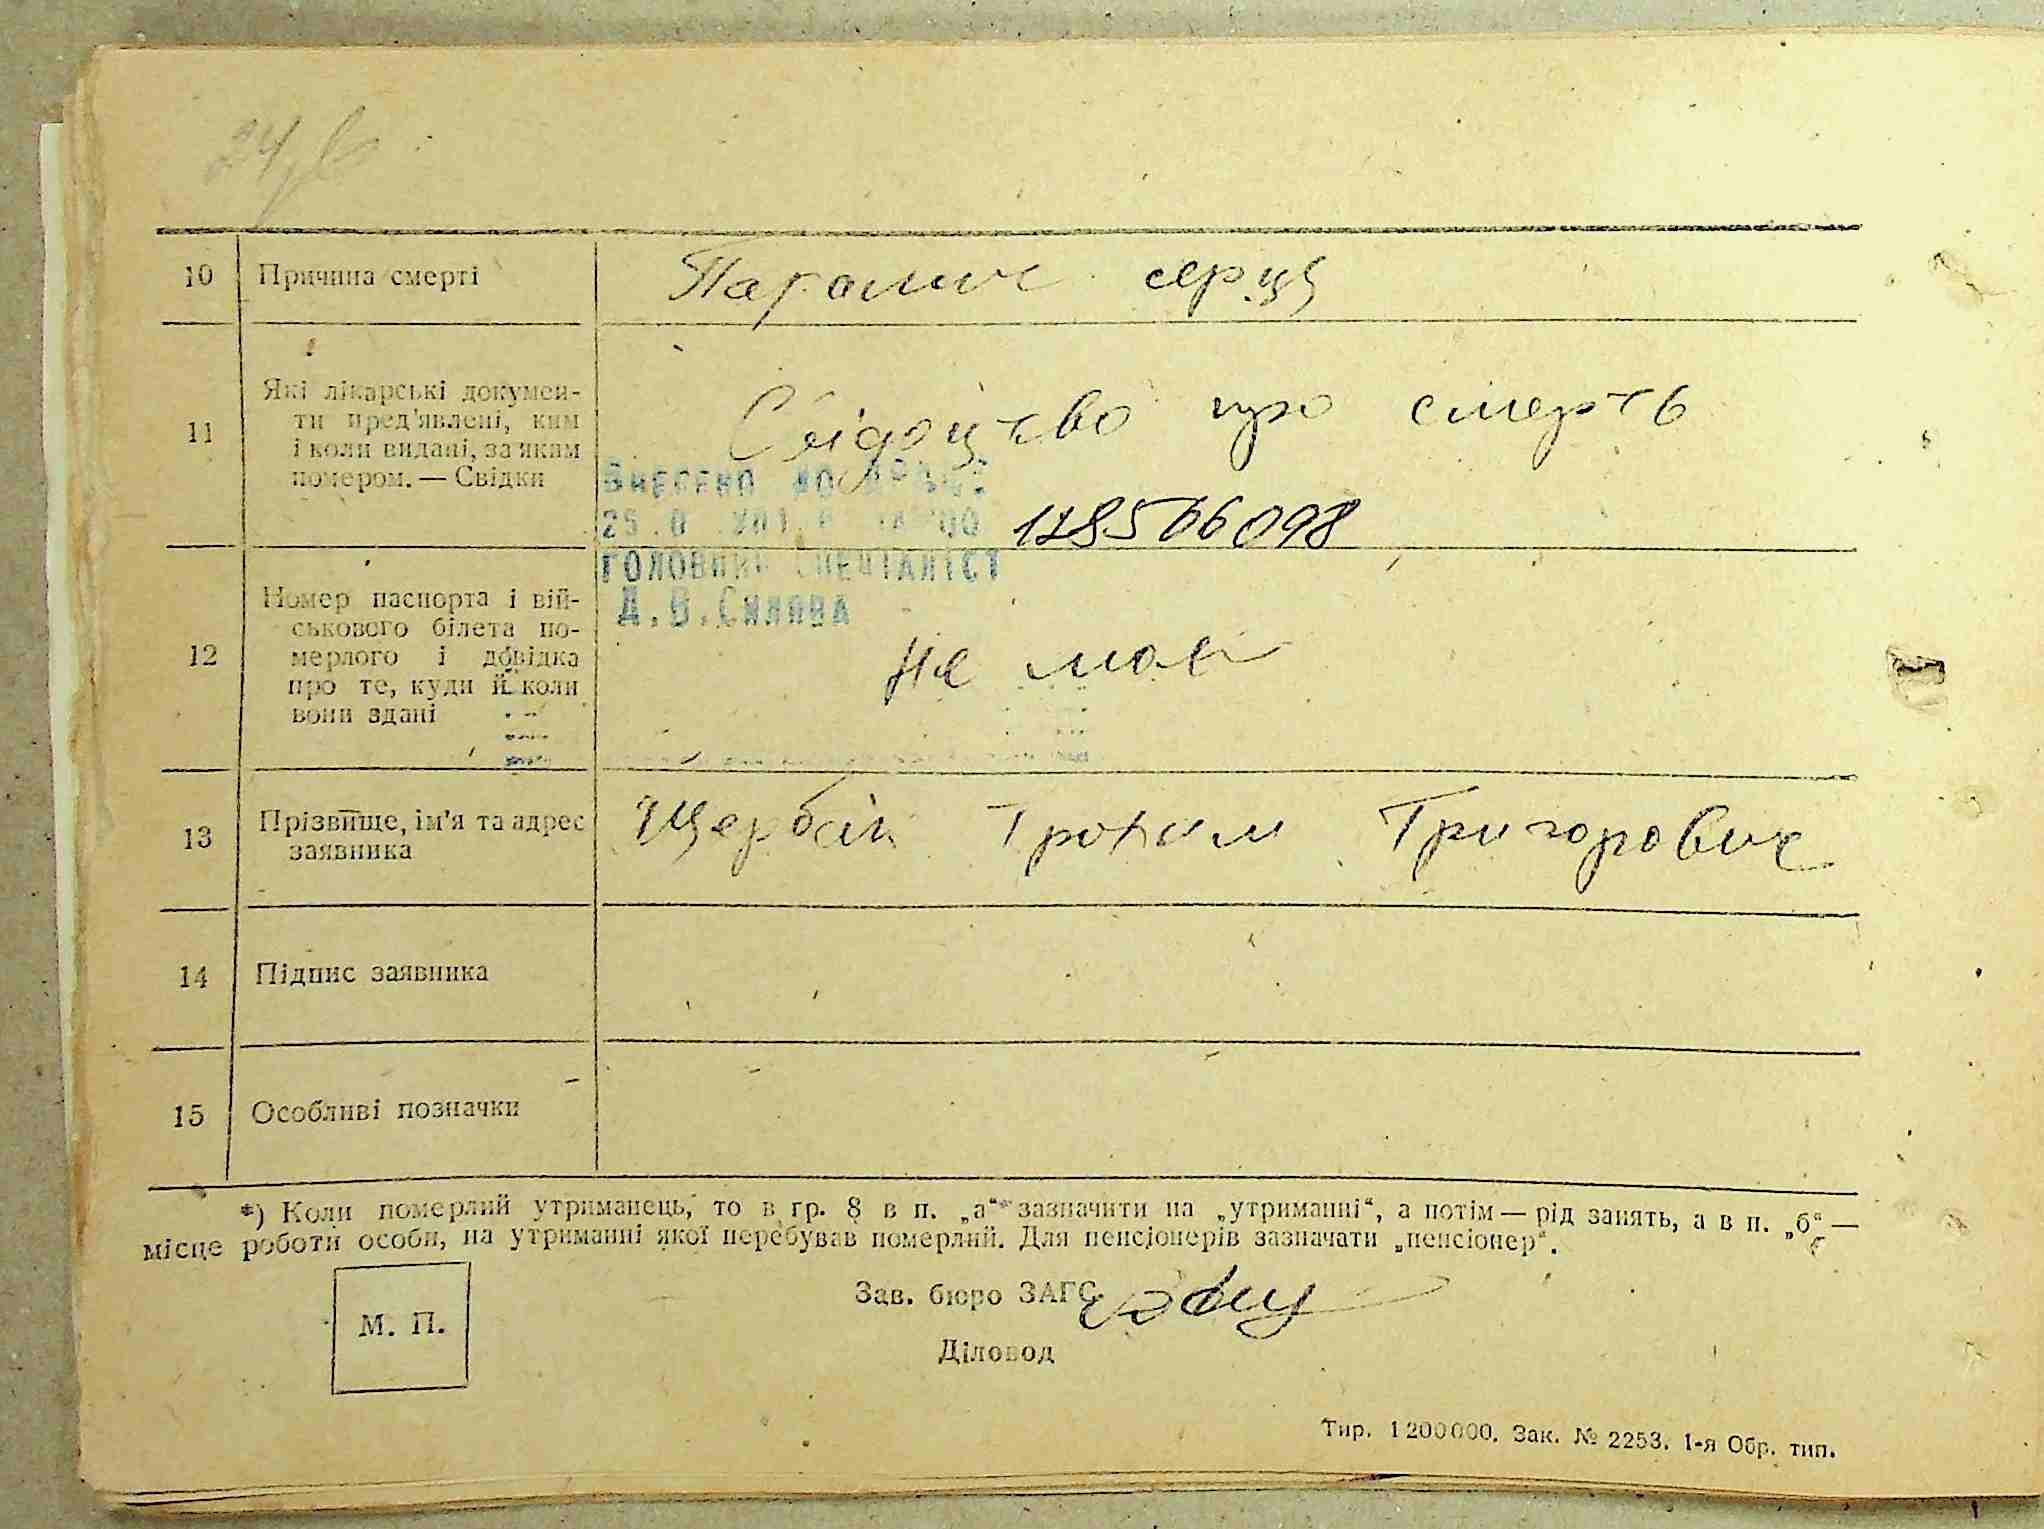 10 Причина смерті Параліч серця
11 Які лікарські докумен-
ти пред'явлені, ким
і коли видані, за яким
номером. — Свідки
Свідоцтво про смерть
Внесено до
178566098
ГОЛОВНИЙ СПЕЦІАЛІСТ
12 Номер паспорта і вій-
ськового білета по-
мерлого і довідка
про те, куди й коли
вони здані
Не має
13 Прізвище, ім'я та адрес
заявника
Трохим Григорович
14 Підпис заявника
15 Особливі позначки
*) Коли померлий утриманець, то в гр. 8 в п. „а“ зазначити на „утриманні“, а потім — рід занять, а в п. „б“ —
місце роботи особи, на утриманні якої перебував померлий. Для пенсіонерів зазначати „пенсіонер“.
Зав. бюро ЗАГС
М. П.
Діловод
Тир. 1 200 000. Зак. № 2253. 1-я Обр. тип.